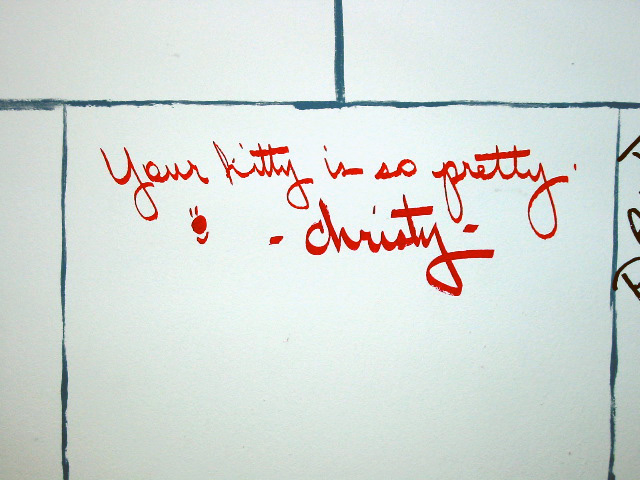 Your kitty is so pretty.
- christy -